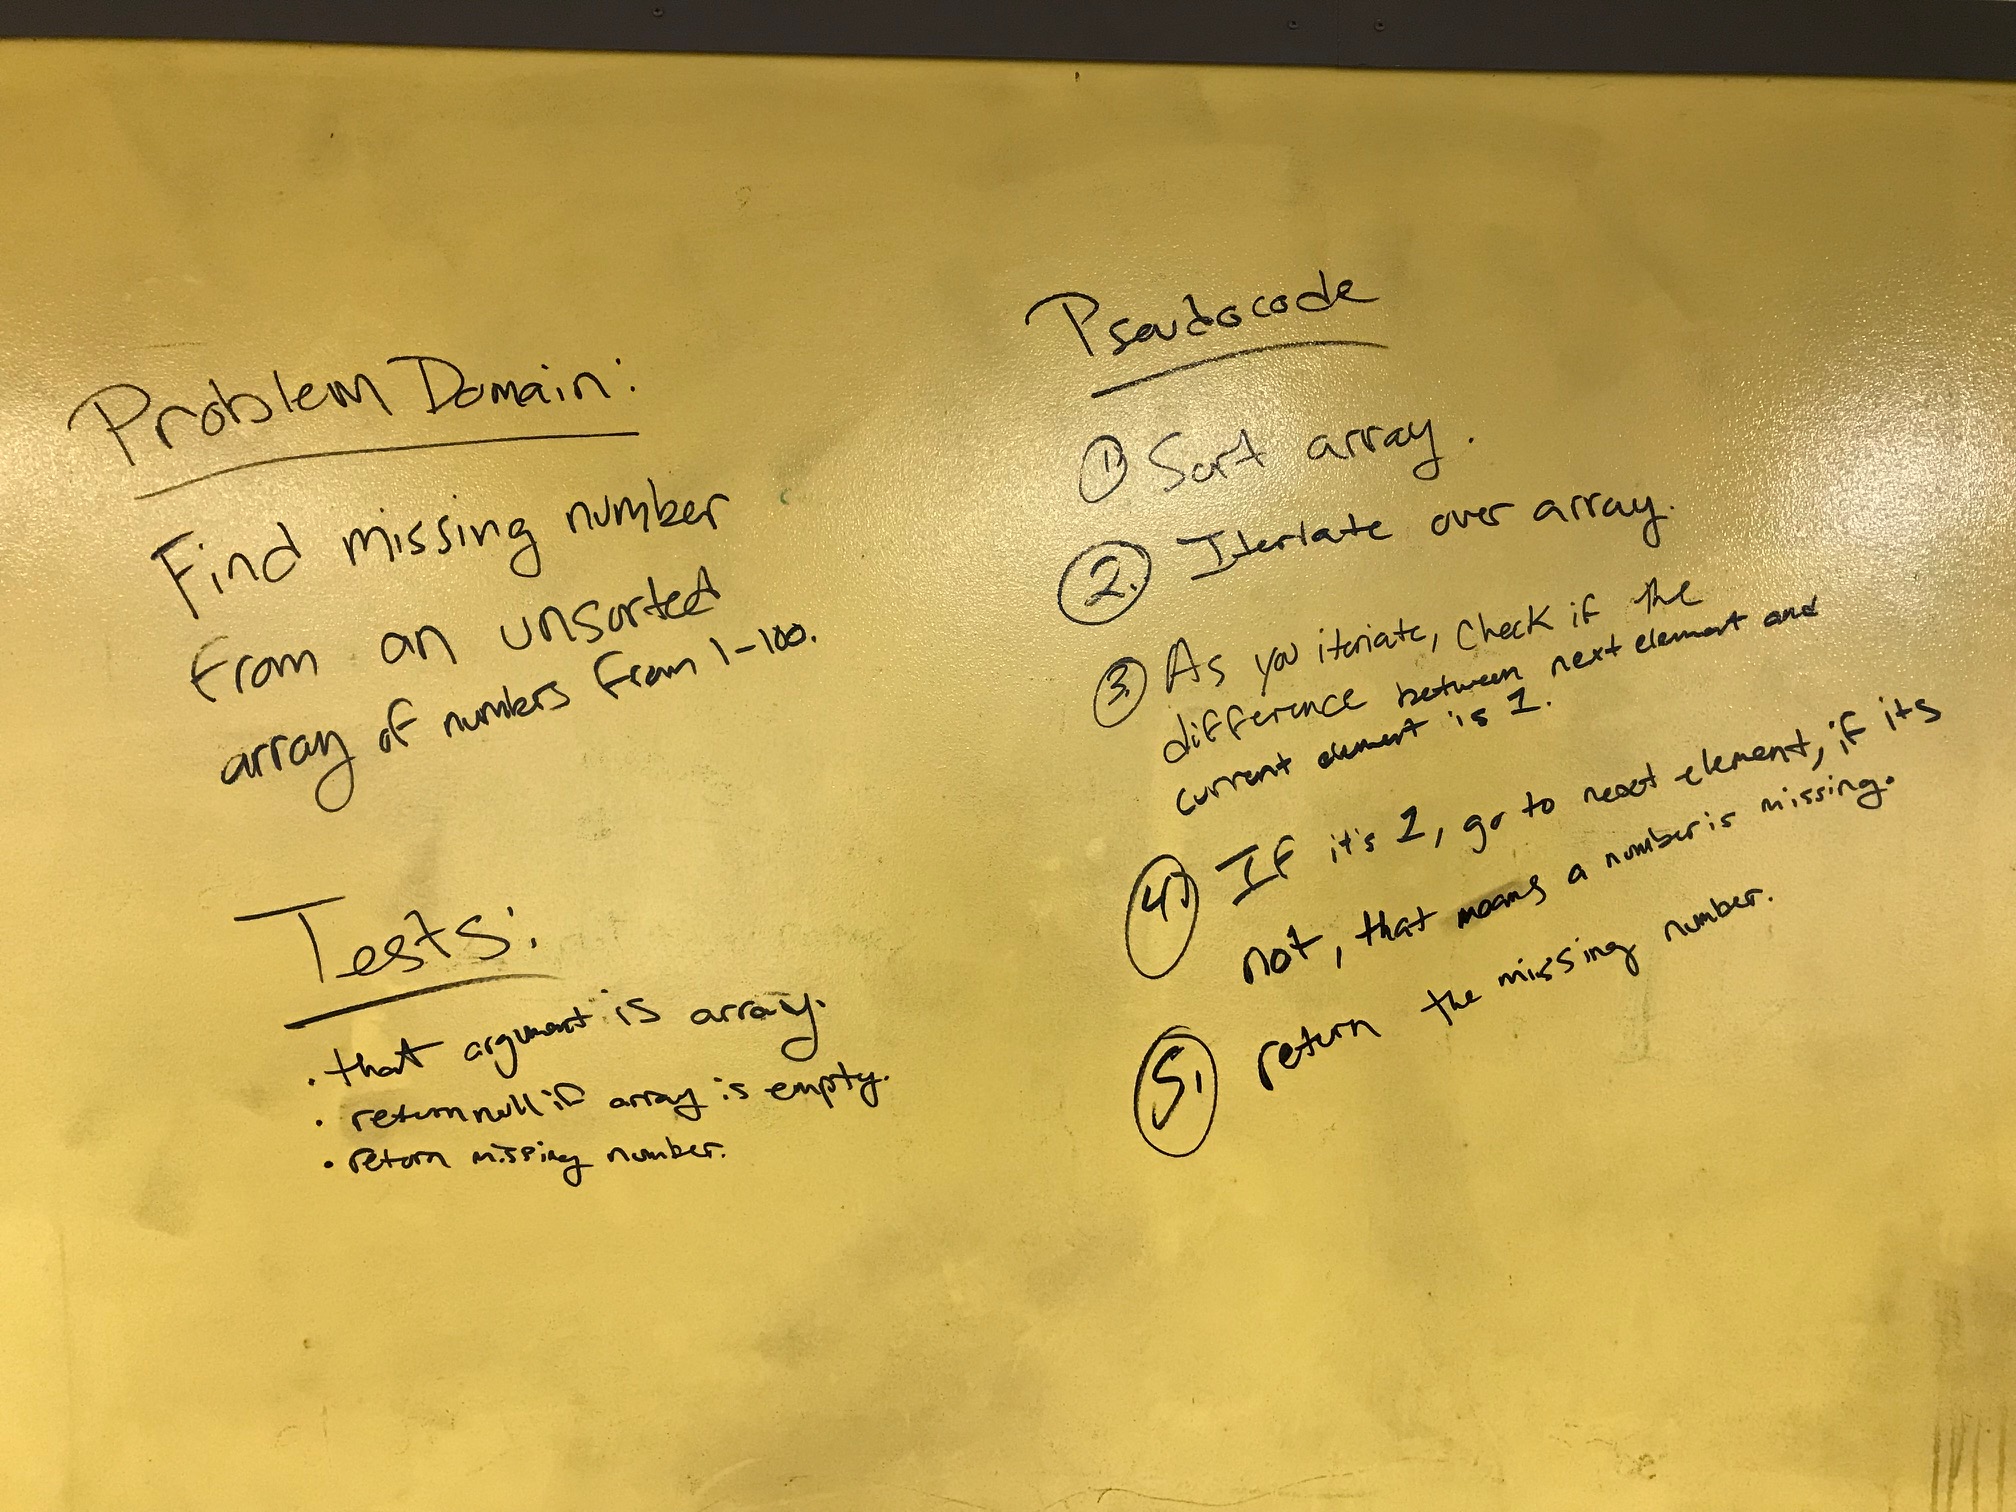 Problem Domain:
Find missing number
from an unsorted
array of numbers from 1-100.
Tests:
• that argument is array.
• return null if array is empty.
• return missing number.
Pseudocode
1. Sort array.
2. Iteriate over array.
3. As you iteriate, check if the
difference between next element and
current element is 1.
4. If it's 1, go to next element, if its
not, that means a number is missing.
5. return the missing number.